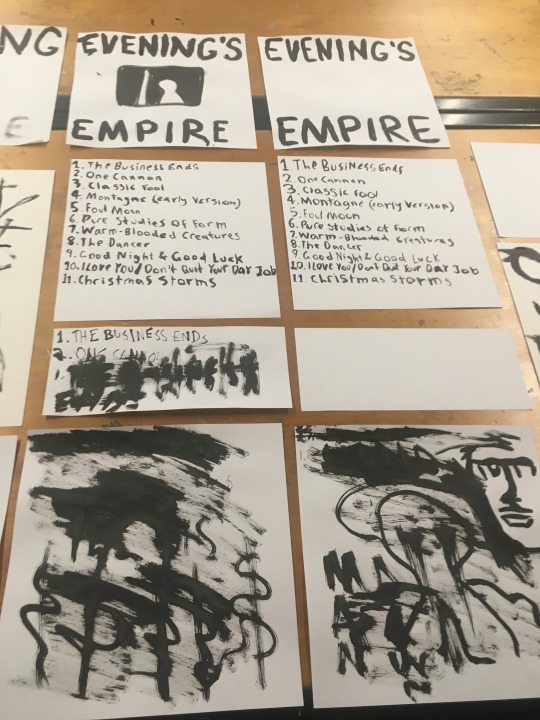 NG
E
EVENING'S
EMPIRE
EVENING'S
EMPIRE
1. The Business Ends
2. One Cannon
3. Classic Fool
4. Montagne (early Version)
5. Foul Moon
6. Pure Studies of Form
7. Warm-Blooded Creatures
8. The Dancer
9. Good Night & Good Luck
10. I Love You/Don't Quit Your Day Job
11. Christmas Storms
1. The Business Ends
2. One Cannon
3. Classic Fool
4. Montagne (early Version)
5. Foul Moon
6. Pure Studies of Form
7. Warm-Blooded Creatures
8. The Dancer
9. Good Night & Good Luck
10. I Love You/Don't Quit Your Day Job
11. Christmas Storms
1. THE BUSINESS ENDS
2. ONE CANNO